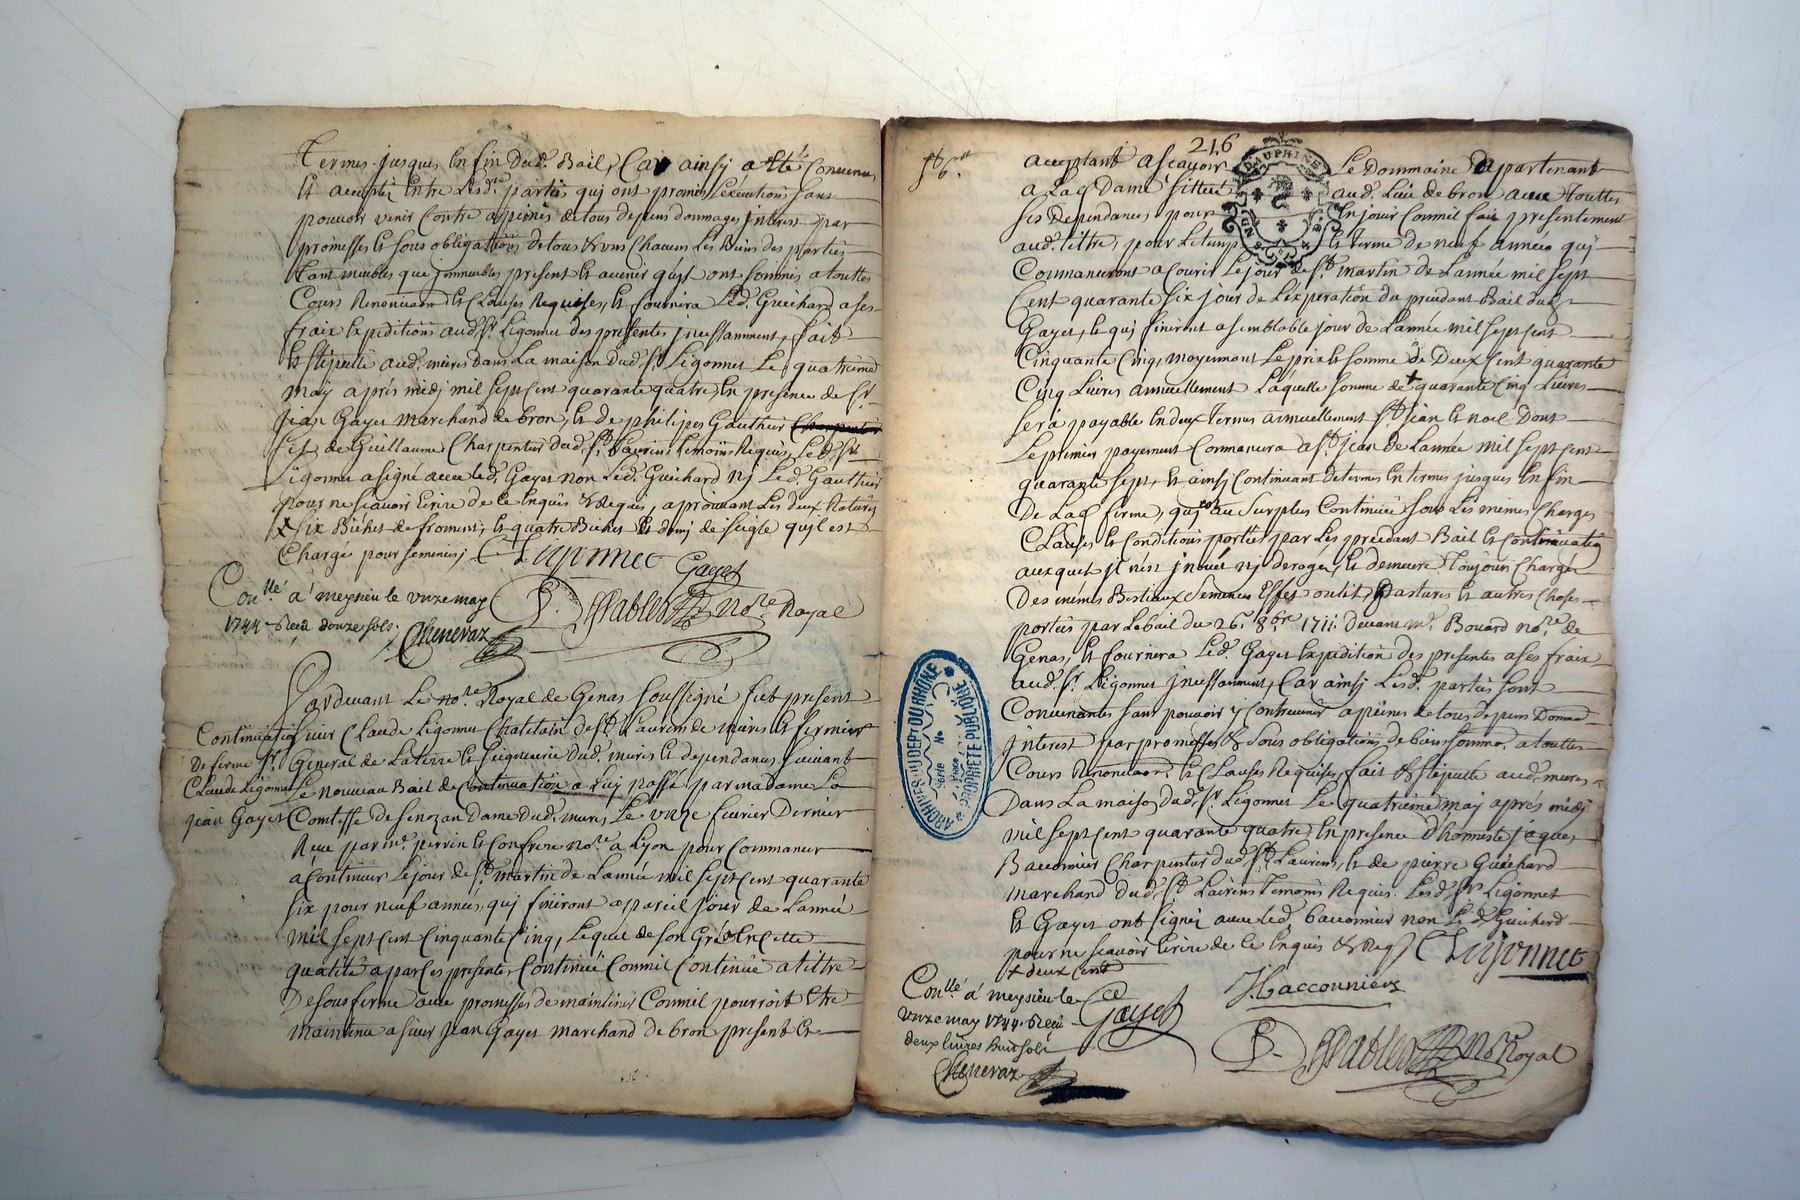 Termes jusques En fin Dud. Bail, Car ainsy a Eté Convenu
Et accepté Entre Lesd. parties qui ont promis L'exécution sans
pouvoir venir Contre a peines de tous depens dommages Interest par
promesses Et sous obligations de tous & uns Chacuns Les Biens des parties
tant meubles que Jmmeubles present Et avenir qu'ils ont soumis a touttes
Cours Renonciaon Et Clauses Requises, Et fournira Led. Guichard a ses
fraix Expeditions aud. Sr. Ligonnet des presentes Jncessamment, fait
Et stipullé aud. mures Dans La maison dud. Sr. Ligonnet Le quatrieme
may aprés midy mil sept Cent quarante quatre, En presence de Sr.
Jean Gayet marchand de bron, Et de philipes Gauthier Charpentier
fils de Guillaume Charpentier dud. St. Laurens Temoins Requis, Led. Sr.
Ligonnet a signé avec Led. Gayet non Led. Guichard Nj Led. Gauthier
pour ne Scavoir Ecrire de Ce Enquis & Requis, aprouvant Les deux Ratures
x six Biches de froment, Et quatre Biches Et demj de seigle qu'il est
Chargé pour semences, C Lijonnet Gayet
Conllé à meysieu le unze may
1744. Receu douze sols.
Cheneraz
P. DesSables Nore Royal
Pardevant Le Nore. Royal de Genas soussigné fut present
Continuation
De ferme Sr.
Claude Ligonnet
Jean Gayet
Sieur Claude Ligonnet Chatelain de St. Laurens de mures Et fermier
General de La terre Et seigneurie Dud. mures Et dependances suivant
Le nouveau Bail de Continuation a Luy passé par madame La
Comtesse de Senozan Dame dud. mures Le unze fevrier Dernier
Receu par me. perrin Et Confrere Nore a Lyon pour Commancer
à Continuer Le jour de St. martin de L'année mil sept Cent quarante
six pour neuf années, qui finiront a pareil jour de L'année
mil sept Cent Cinquante Cinq, Lequel de son Gré & En Cette
qualité a par Ces presentes Continüé Comme il Continüe a titre
De sousferme avec promesses de maintenir Comme il pourroit Etre
maintenu a sieur Jean Gayet marchand de bron present Et
216
acceptant a Scavoir Le Dommaine appartenant
DAUPHINE
a Lad. Dame sittué aud. Lieu de bron avec touttes
Ses Dependances pour En jouir Comme il fait presentement
aud. tittre, pour Le tems Et terme de neuf années qui
Commanceront a courir Le jour de St. martin de L'année mil sept
Cent quarante six jour de L'experation du precedant Bail dud.
Gayet, Et qui finiront a semblable jour de L'année mil sept Cent
Cinquante Cinq, moyennant Le prix Et somme de Deux Cent quarante
Cinq Livres annuellement Laquelle somme de + quarante Cinq Livres
sera payable En deux termes annuellement St. Jean Et noel Dont
Le premier payement Commancera a St. Jean de L'année mil sept cent
quarante sept, Et ainsy Continuant de termes En termes jusques En fin
De Lad. ferme, qui est au surplus Continüée sous Les mêmes Charges
Clauses Et Conditions portées par Les precedant Bail Et Continuation
auxquels Jl n'est Jnnové Nj derogé, Et demeure Toujours Chargé
Des mêmes Bestiaux Semences Effet outils Pastures Et autres Choses
portées par Le bail du 26e. 8bre. 1711. Devant me. Bouard Nore. de
Genas, Et fournira Led. Gayet Expedition des presentes a ses fraix
aud. Sr. Ligonnet Jncessamment, Car ainsy Lesd. parties sont
Convenantes sans pouvoir y Contrevenir a peines de tous depens Domma.
Jnterest par promesses & sous obligations de biens soumis a touttes
Cours Renonciaon. Et Clauses Requises, fait & stipullé aud. mures
Dans La maison dud. Sr. Ligonnet Le quatrieme may aprés midy
mil sept Cent quarante quatre, En presence D'honneste Jaques
Bacconnier Charpentier dud. St. Laurens, Et de pierre Guichard
marchand dud. St. Laurens Temoins Requis. Lesd. Srs. Ligonnet
Et Gayet ont signé avec Led. bacconnier non Led. Guichard
pour ne Scavoir Ecrire de Ce Enquis & Req. C Lijonnet
+ deux Cent
J Bacconnier
Conllé à meysieu le
unze may 1744. Receu
deux livres huit sols
Cheneraz
Gayet
P. DesSables Nore Royal
ARCHIVES DU DEPT DU RHÔNE
PROPRIÉTÉ PUBLIQUE